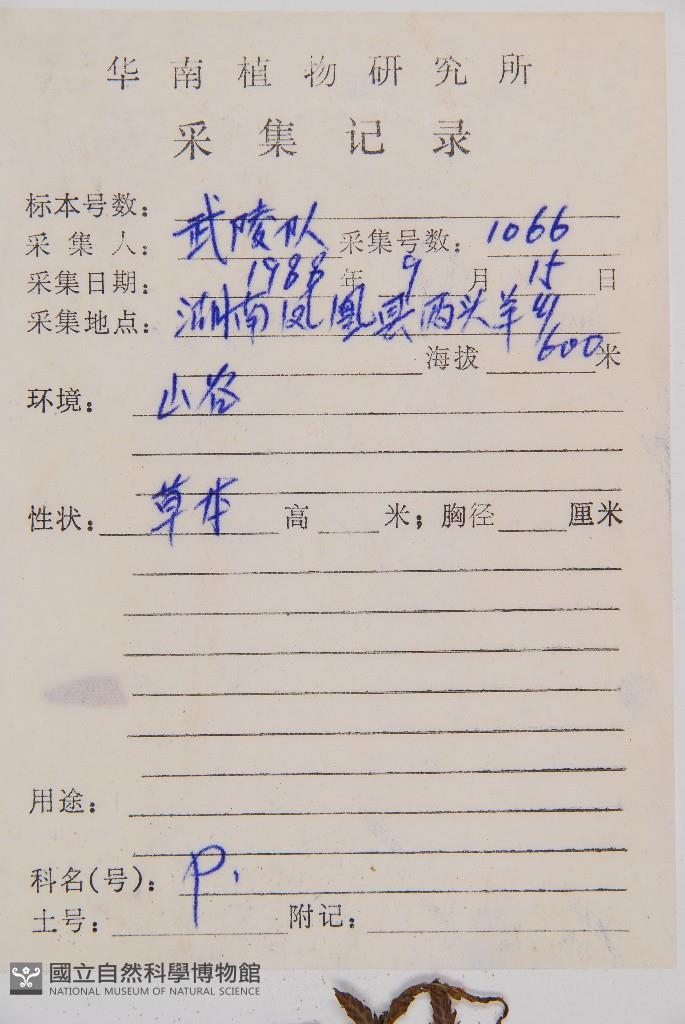 华南植物研究所
采集记录
标本号数：
采集人：武陵队 采集号数：1066
采集日期：1988年9月15日
采集地点：湖南凤凰县两头羊乡
海拔600米
环境：山谷
性状：草本 高 米；胸径 厘米
用途：
科名(号)：P.
土号： 附记：
國立自然科學博物館
NATIONAL MUSEUM OF NATURAL SCIENCE